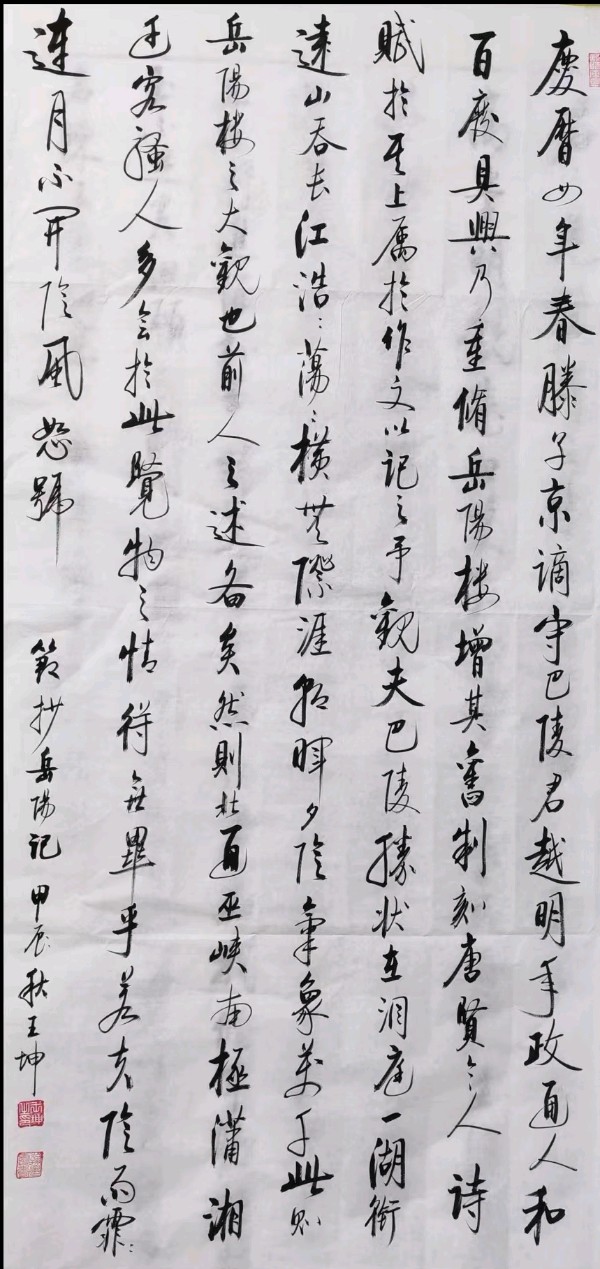 慶曆四年春滕子京謫守巴陵君越明年政通人和
百廢具興乃重脩岳陽楼增其舊制刻唐賢今人詩
賦於其上屬於作文以記之予觀夫巴陵勝状在洞庭一湖銜
遠山吞长江浩〻蕩〻横無際涯朝暉夕陰氣象萬千此則
岳陽楼之大觀也前人之述备矣然則北通巫峡南極瀟湘
迁客騷人多会於此覽物之情得無異乎若夫陰雨霏〻
連月不開陰風怒號
節抄岳陽记 甲辰秋王坤